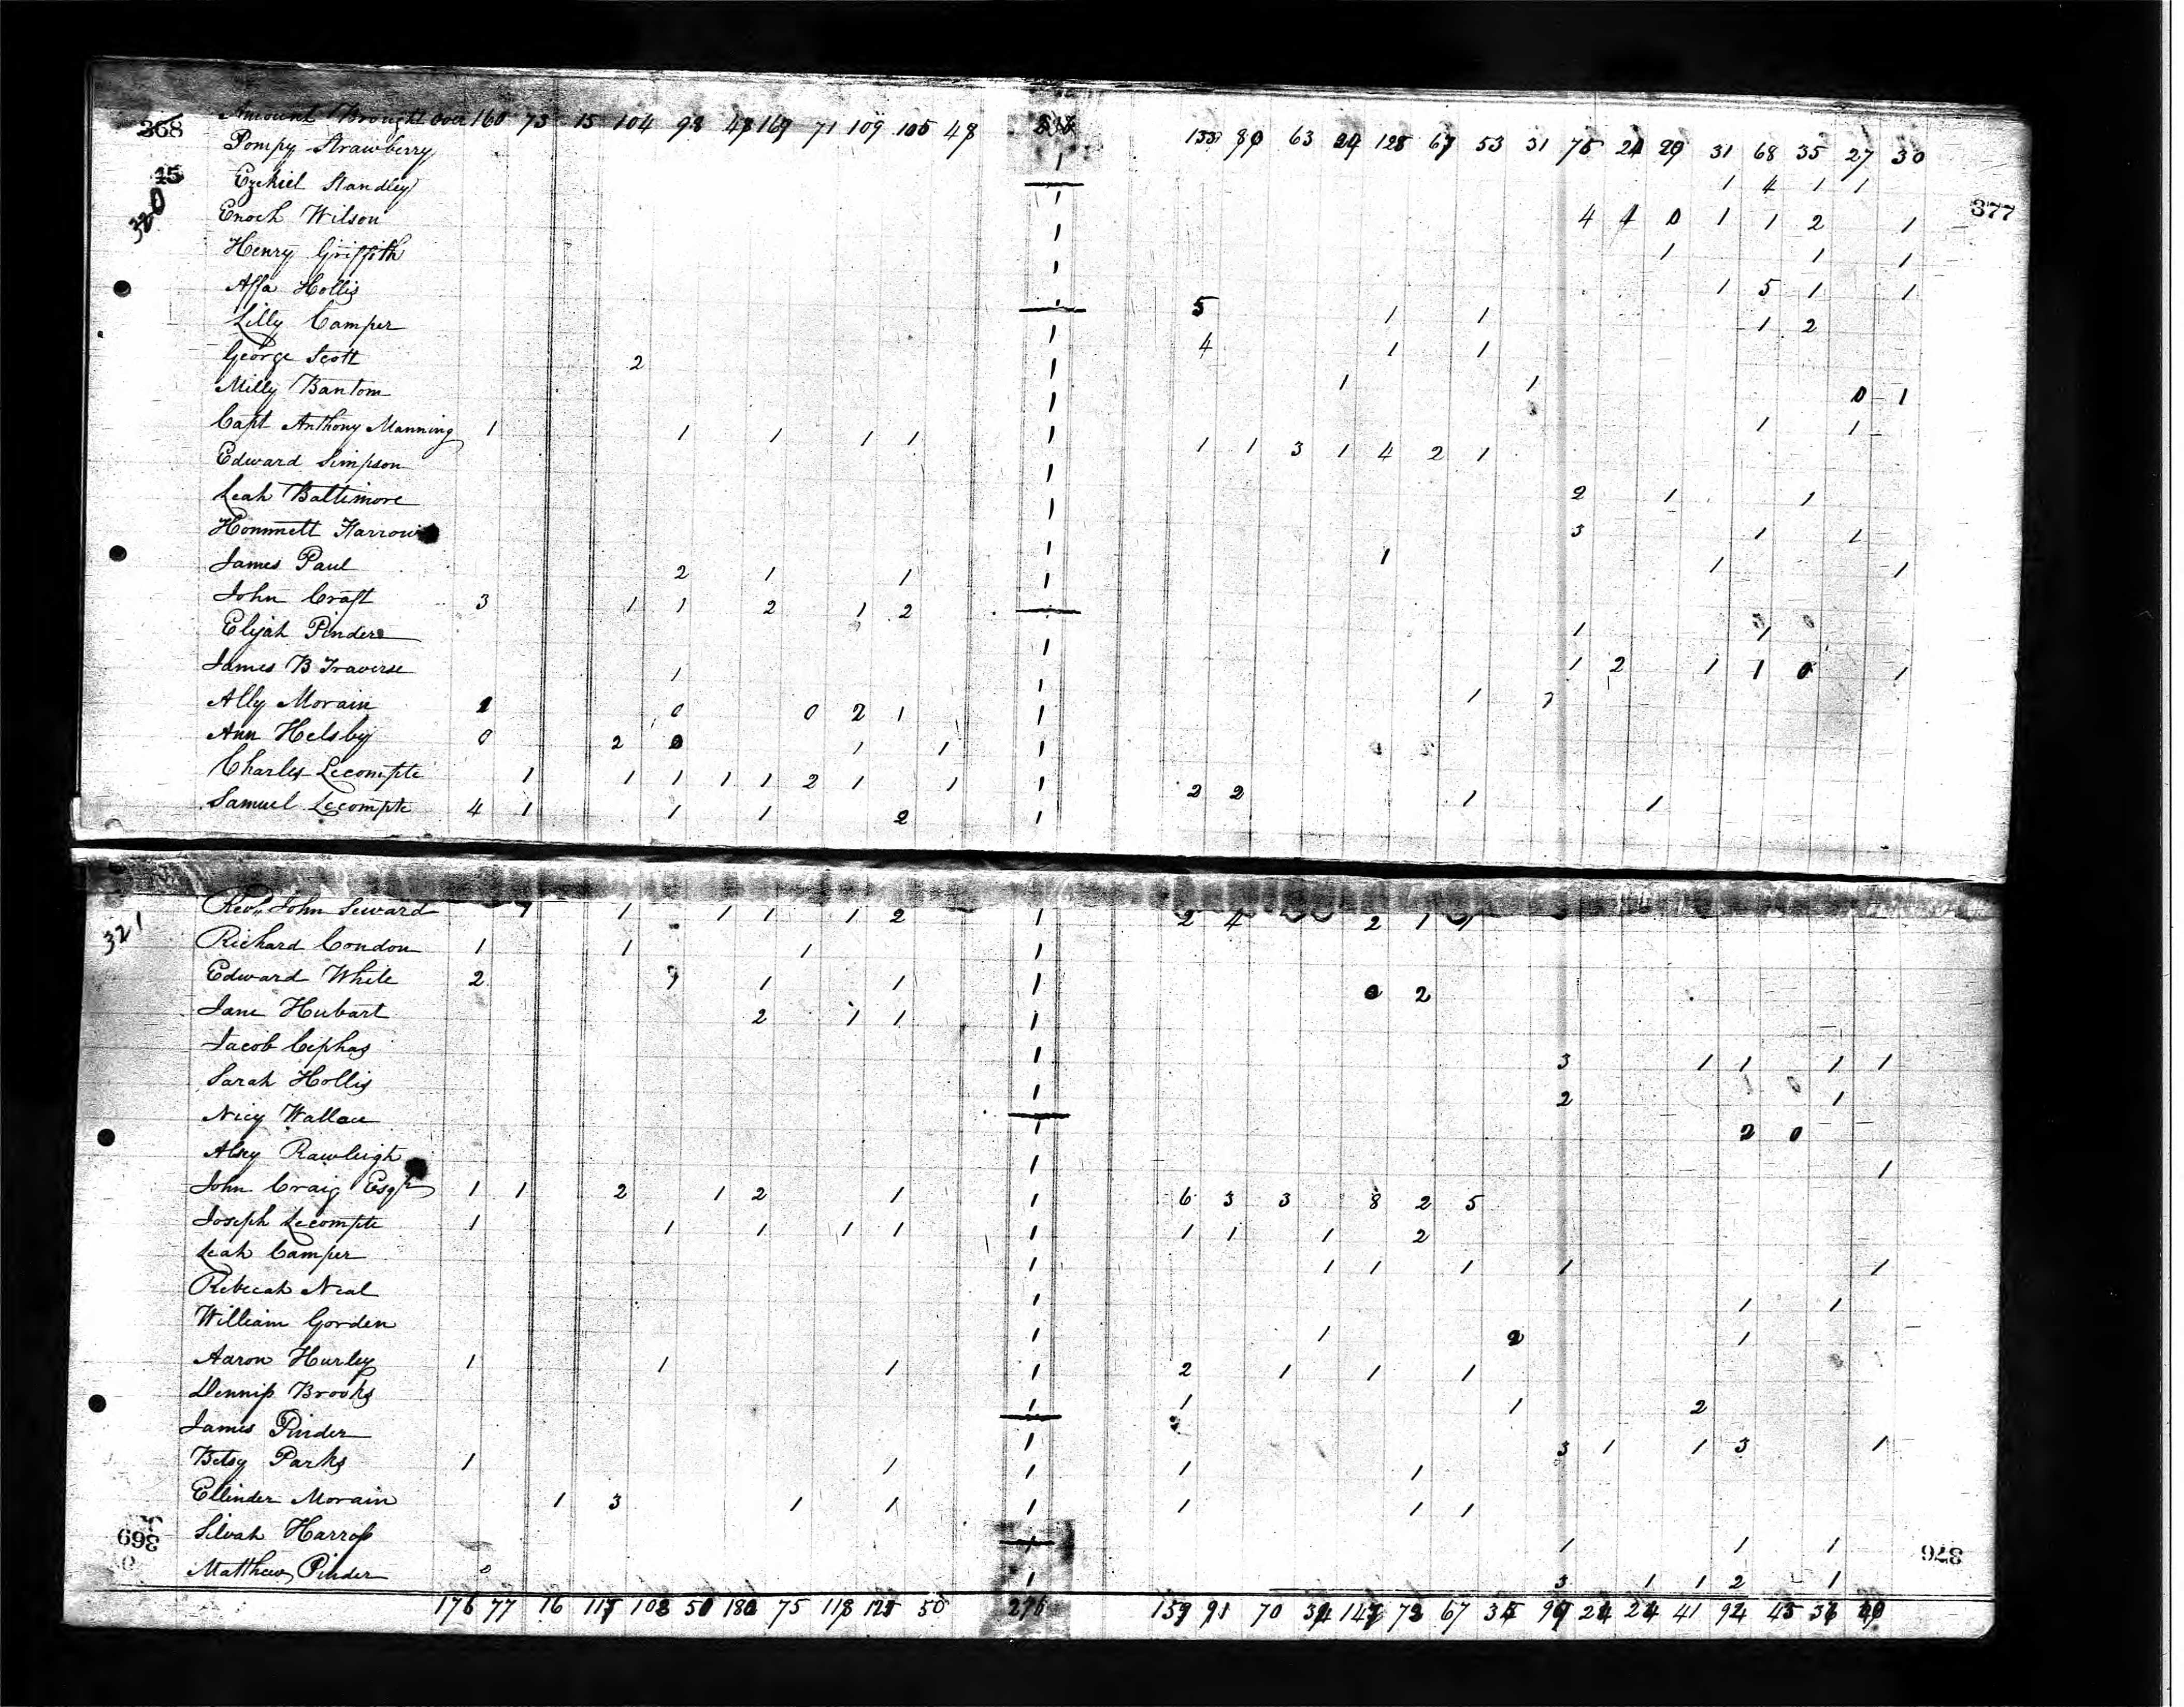 368 Amount Brought over 160 73 15 104 98 48 169 71 109 105 48 133 89 63 29 128 67 53 31 75 21 29 31 68 35 27 30
Pompy Strawberry 1
15 Ezekiel Standley 1 1 4 1 1
320 Enoch Wilson 1 4 1 0 1 1 2 1 377
Henry Griffith 1 1 1 1
Affa Hollis 1 1 5 1 1
Lilly Camper 5 1 1 1 2
George Scott 2 1 4 1 1
Milly Bantom 1 1 1 0 1
Capt Anthony Manning 1 1 1 1 1 1 1 1 3 1 4 2 1 1 1
Edward Simpson 1
Leah Baltimore 1 2 1 1
Hommett 3 1 1
James Paul 2 1 1 1 1 1 1
John Craft 3 1 1 2 1 2
Elijah Pinder 1 1 1
James B Traverse 1 1 1 2 1 1 0 1
Ally Morain 0 0 2 1 1 1 1
Ann Helsby 0 2 0 1 1 1
Charles Lecompte 1 1 1 1 1 2 1 1 1 2 2 1 1
Samuel Lecompte 4 1 1 1 2 1
321 Revd John Seward 1 1 1 1 1 2 1 2 4 2 1 1
Richard Condon 1 1 1 1
Edward White 2 1 1 1 1 0 2
Jane Hubart 2 1 1 1
Jacob Cephas 1 3 1 1 1 1
Sarah Hollis 1 2 1
Nicy Wallace 1 2 0
Alsey Rawleigh 1 1
John Craig Esqr 1 1 2 1 2 1 1 6 3 3 8 2 5
Joseph Lecompte 1 1 1 1 1 1 1 1 1 2
Leah Camper 1 1 1 1 1 1
Rebecah Neal 1 1 1
William Gorden 1 1 2 1
Aaron Hurley 1 1 1 1 2 1 1 1
Dennis Brooks 1 1 1 2
James Pinder 1 3 1 1 3 1
Betsy Parks 1 1 1 1 1
Ellinder Morain 1 3 1 1 1 1 1 1
369 Silvah Harross 1 1 1 376
Matthew Pinder 1 3 1 1 2 1
176 77 16 115 108 50 180 75 118 125 50 276 159 91 70 34 147 73 67 35 90 24 24 41 92 43 36 40